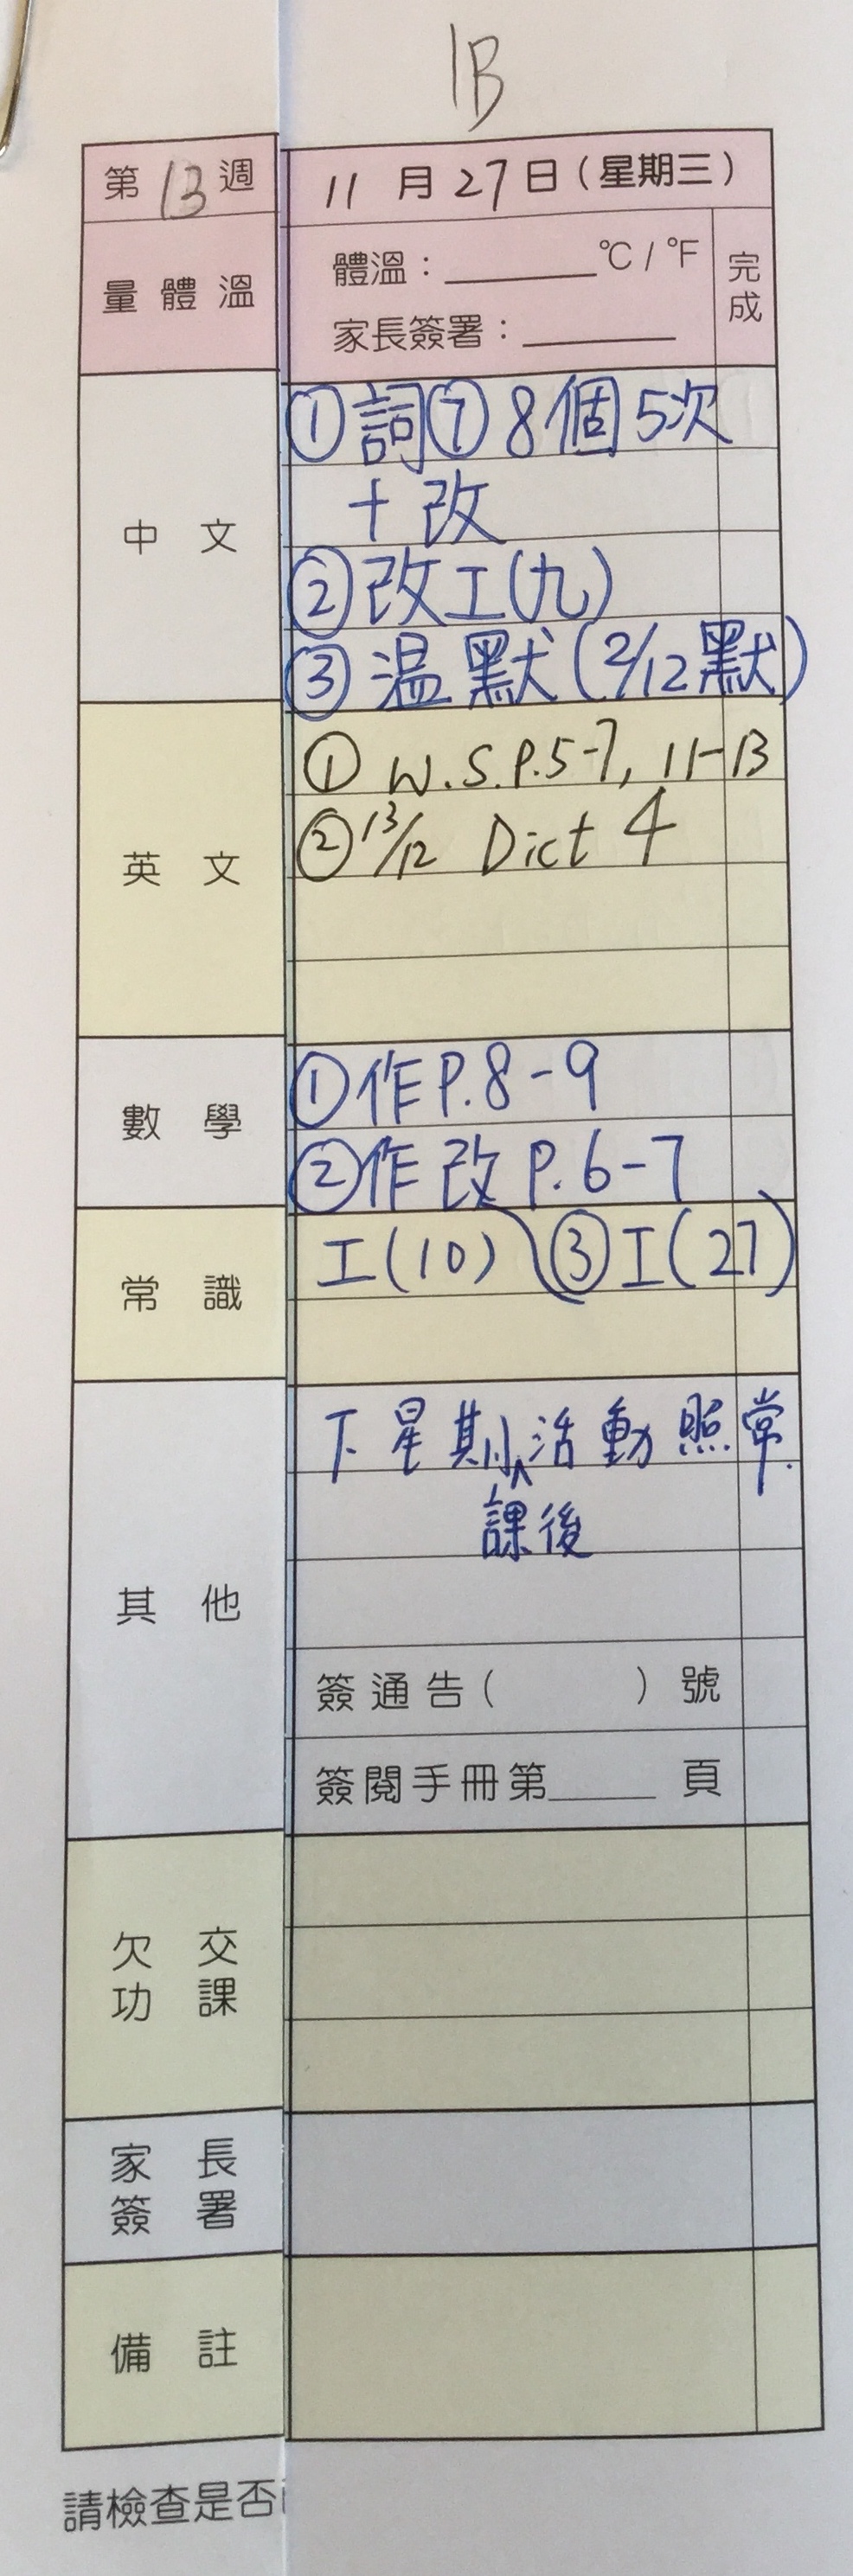 1B
第13週 11月27日(星期三)
量體溫 體溫:______℃/℉ 完成
家長簽署:______
中文 ①詞⑦8個5次
+改
②改工(九)
③温默(2/12默)
英文 ① W.S.P.5-7, 11-13
② 13/12 Dict 4
數學 ①作P.8-9
②作改P.6-7
常識 工(10) ③工(27)
其他 下星期小活動照常.
課後
簽通告( )號
簽閱手冊第____頁
欠交功課
家長簽署
備註
請檢查是否